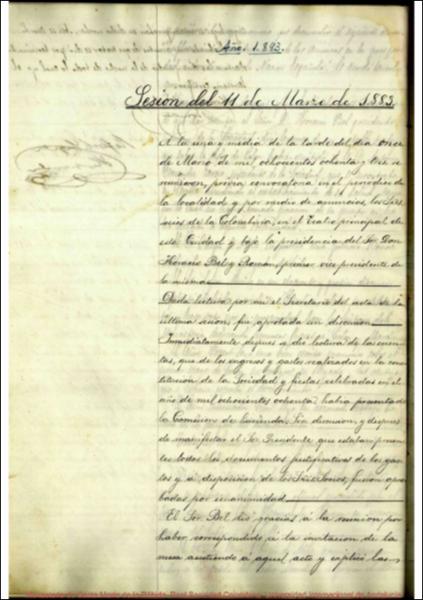 Año 1.883.
Sesión del 11 de Marzo de 1.883.
A la una y media de la tarde del día once
de Marzo de mil ochocientos ochenta y tres se
reunieron, previa convocatoria en el periódico de
la localidad y por medio de anuncios, los Sres.
socios de la Colombina, en el Teatro principal de
esta Ciudad y bajo la presidencia del Sor. Don
Horacio Bel y Román, primer vice presidente de
la misma
Dada lectura por mi el Secretario del acta de la
última sesión, fué aprobada sin discusión
Inmediatamente después se dió lectura de las cuen-
tas, que de los ingresos y gastos realizados en la cons-
titución de la Sociedad y fiestas celebradas en el
año de mil ochocientos ochenta, había presentado
la Comisión de Hacienda. Sin discusión, y después
de manifestar el Sor. Presidente que estaban presen-
tes todos los documentos justificativos de los gas-
tos y á disposición de los Sres. Socios, fueron apro-
badas por unanimidad
El Sor. Bel dió gracias á la reunión por
haber correspondido á la invitación de la
mesa asistiendo á aquel acto y explicó las